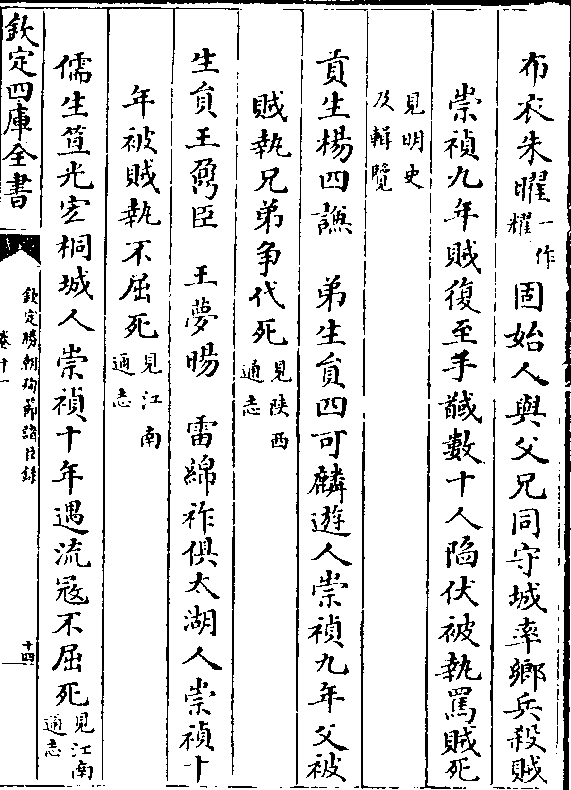 布衣朱曜一作耀固始人與父兄同守城率鄉兵殺賊
崇禎九年賊復至手馘數十人陷伏被執罵賊死
見明史及輯覽
貢生楊四讌　弟生員四可麟遊人崇禎九年父被
賊執兄弟争代死見陜西通志
生員王鄰臣　王夢暘　雷綿祚俱太湖人崇禎十
年被賊執不屈死見江南通志
儒生笪光宏桐城人崇禎十年遇流寇不屈死見江南通志
欽定四庫全書
欽定勝朝殉節諸臣錄
卷十一
十四